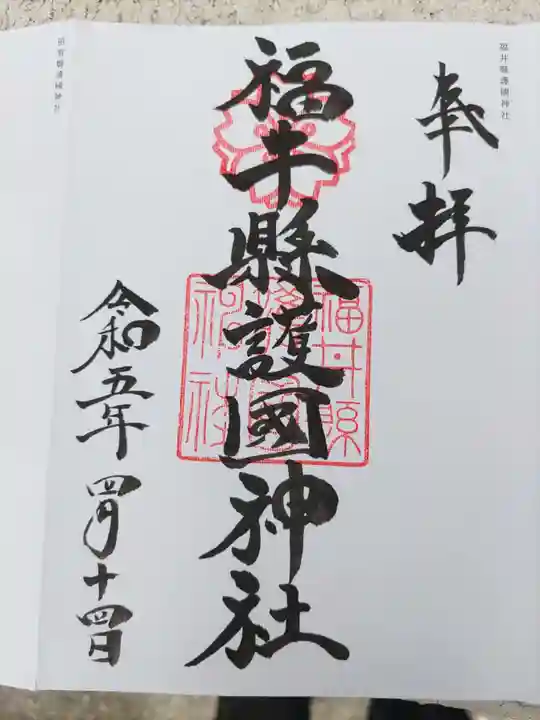 福井縣護國神社
奉拝
福井縣護國神社
福井縣護國神社
令和五年四月十四日
福井縣護國神社